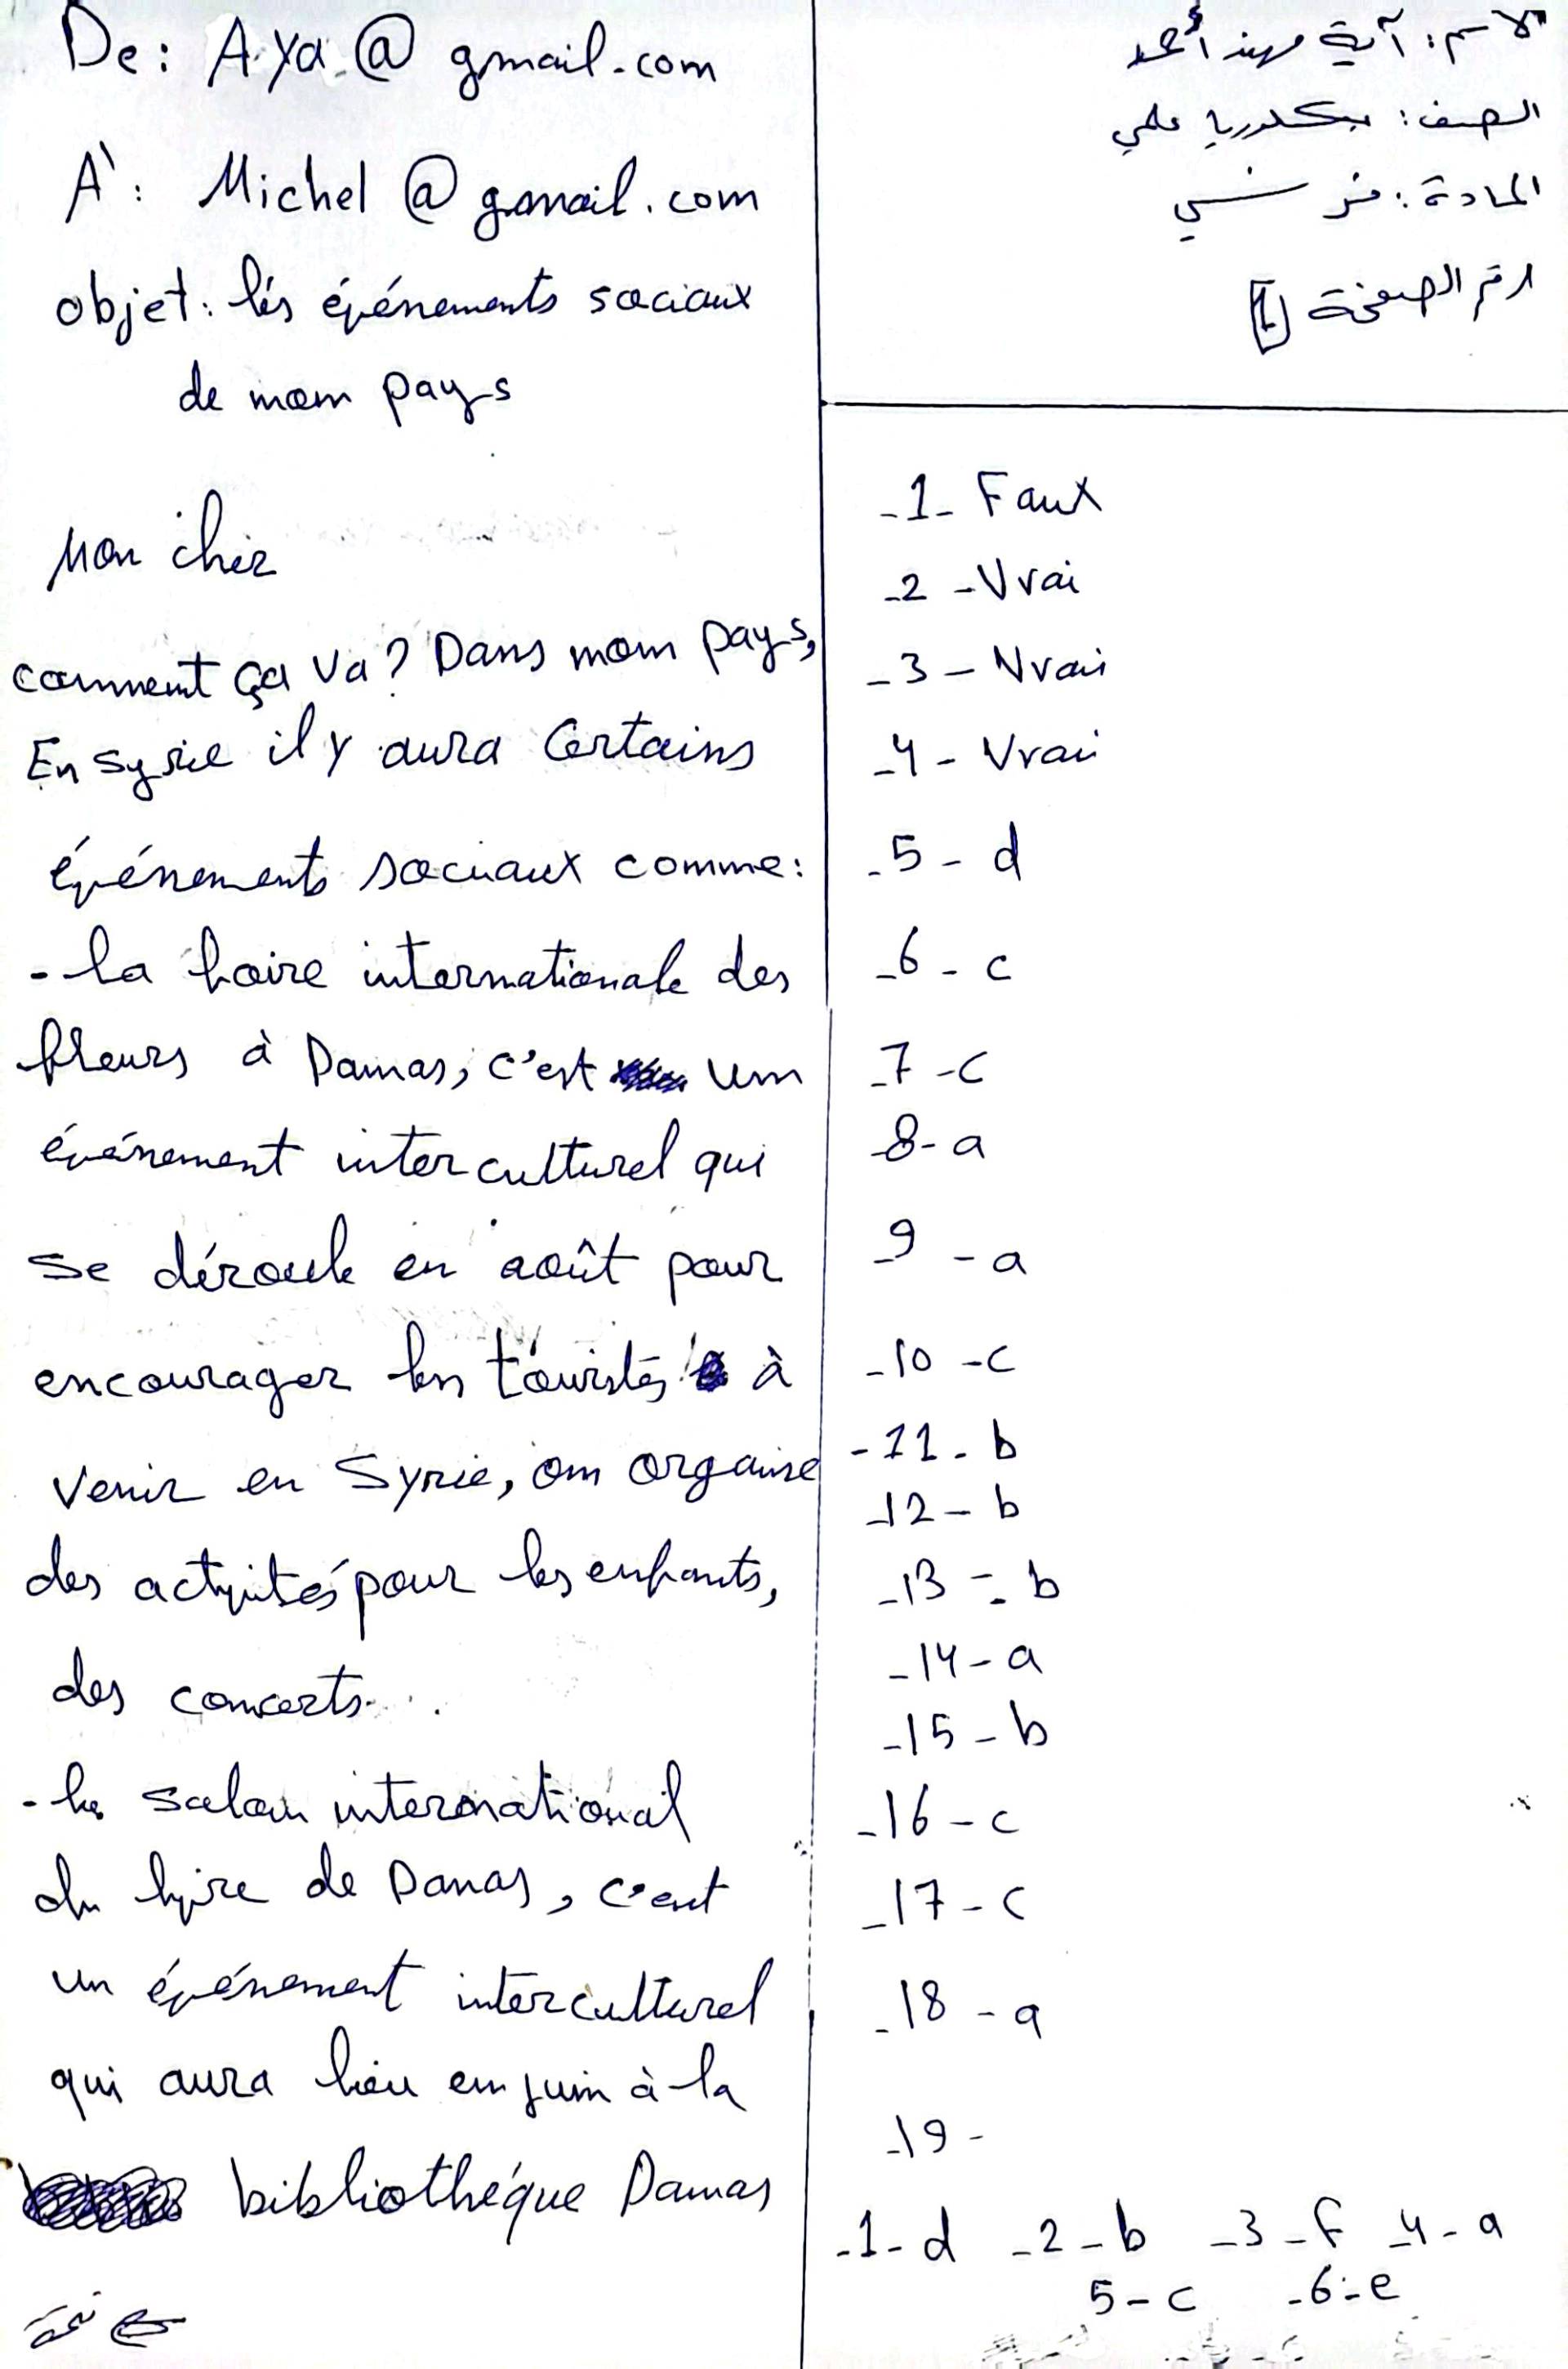 الاسم: آية مهند أحمد
الصف: بكلوريا علمي
المادة: فرنسي
رقم الصفحة [1]
-1- Faux
-2- Vrai
-3- Vrai
-4- Vrai
-5- d
-6- c
-7-c
-8-a
-9-a
-10-c
-11-b
-12-b
-13-b
-14-a
-15-b
-16-c
-17-c
-18-a
-19-
-1-d -2-b -3-f -4-a
5-c -6-e
De: Aya@gmail.com
À: Michel@gmail.com
objet: les événements sociaux
de mon pays
Mon cher
comment ça va? Dans mon pays,
En syrie il y aura Certains
événements sociaux comme:
- la foire internationale des
fleurs à Damas, c'est un
événement interculturel qui
se déroule en août pour
encourager les touristes à
venir en Syrie, on organise
des activités pour les enfants,
des concerts...
- le salon international
du livre de Damas, c'est
un événement interculturel
qui aura lieu en juin à la
bibliothéque Damas